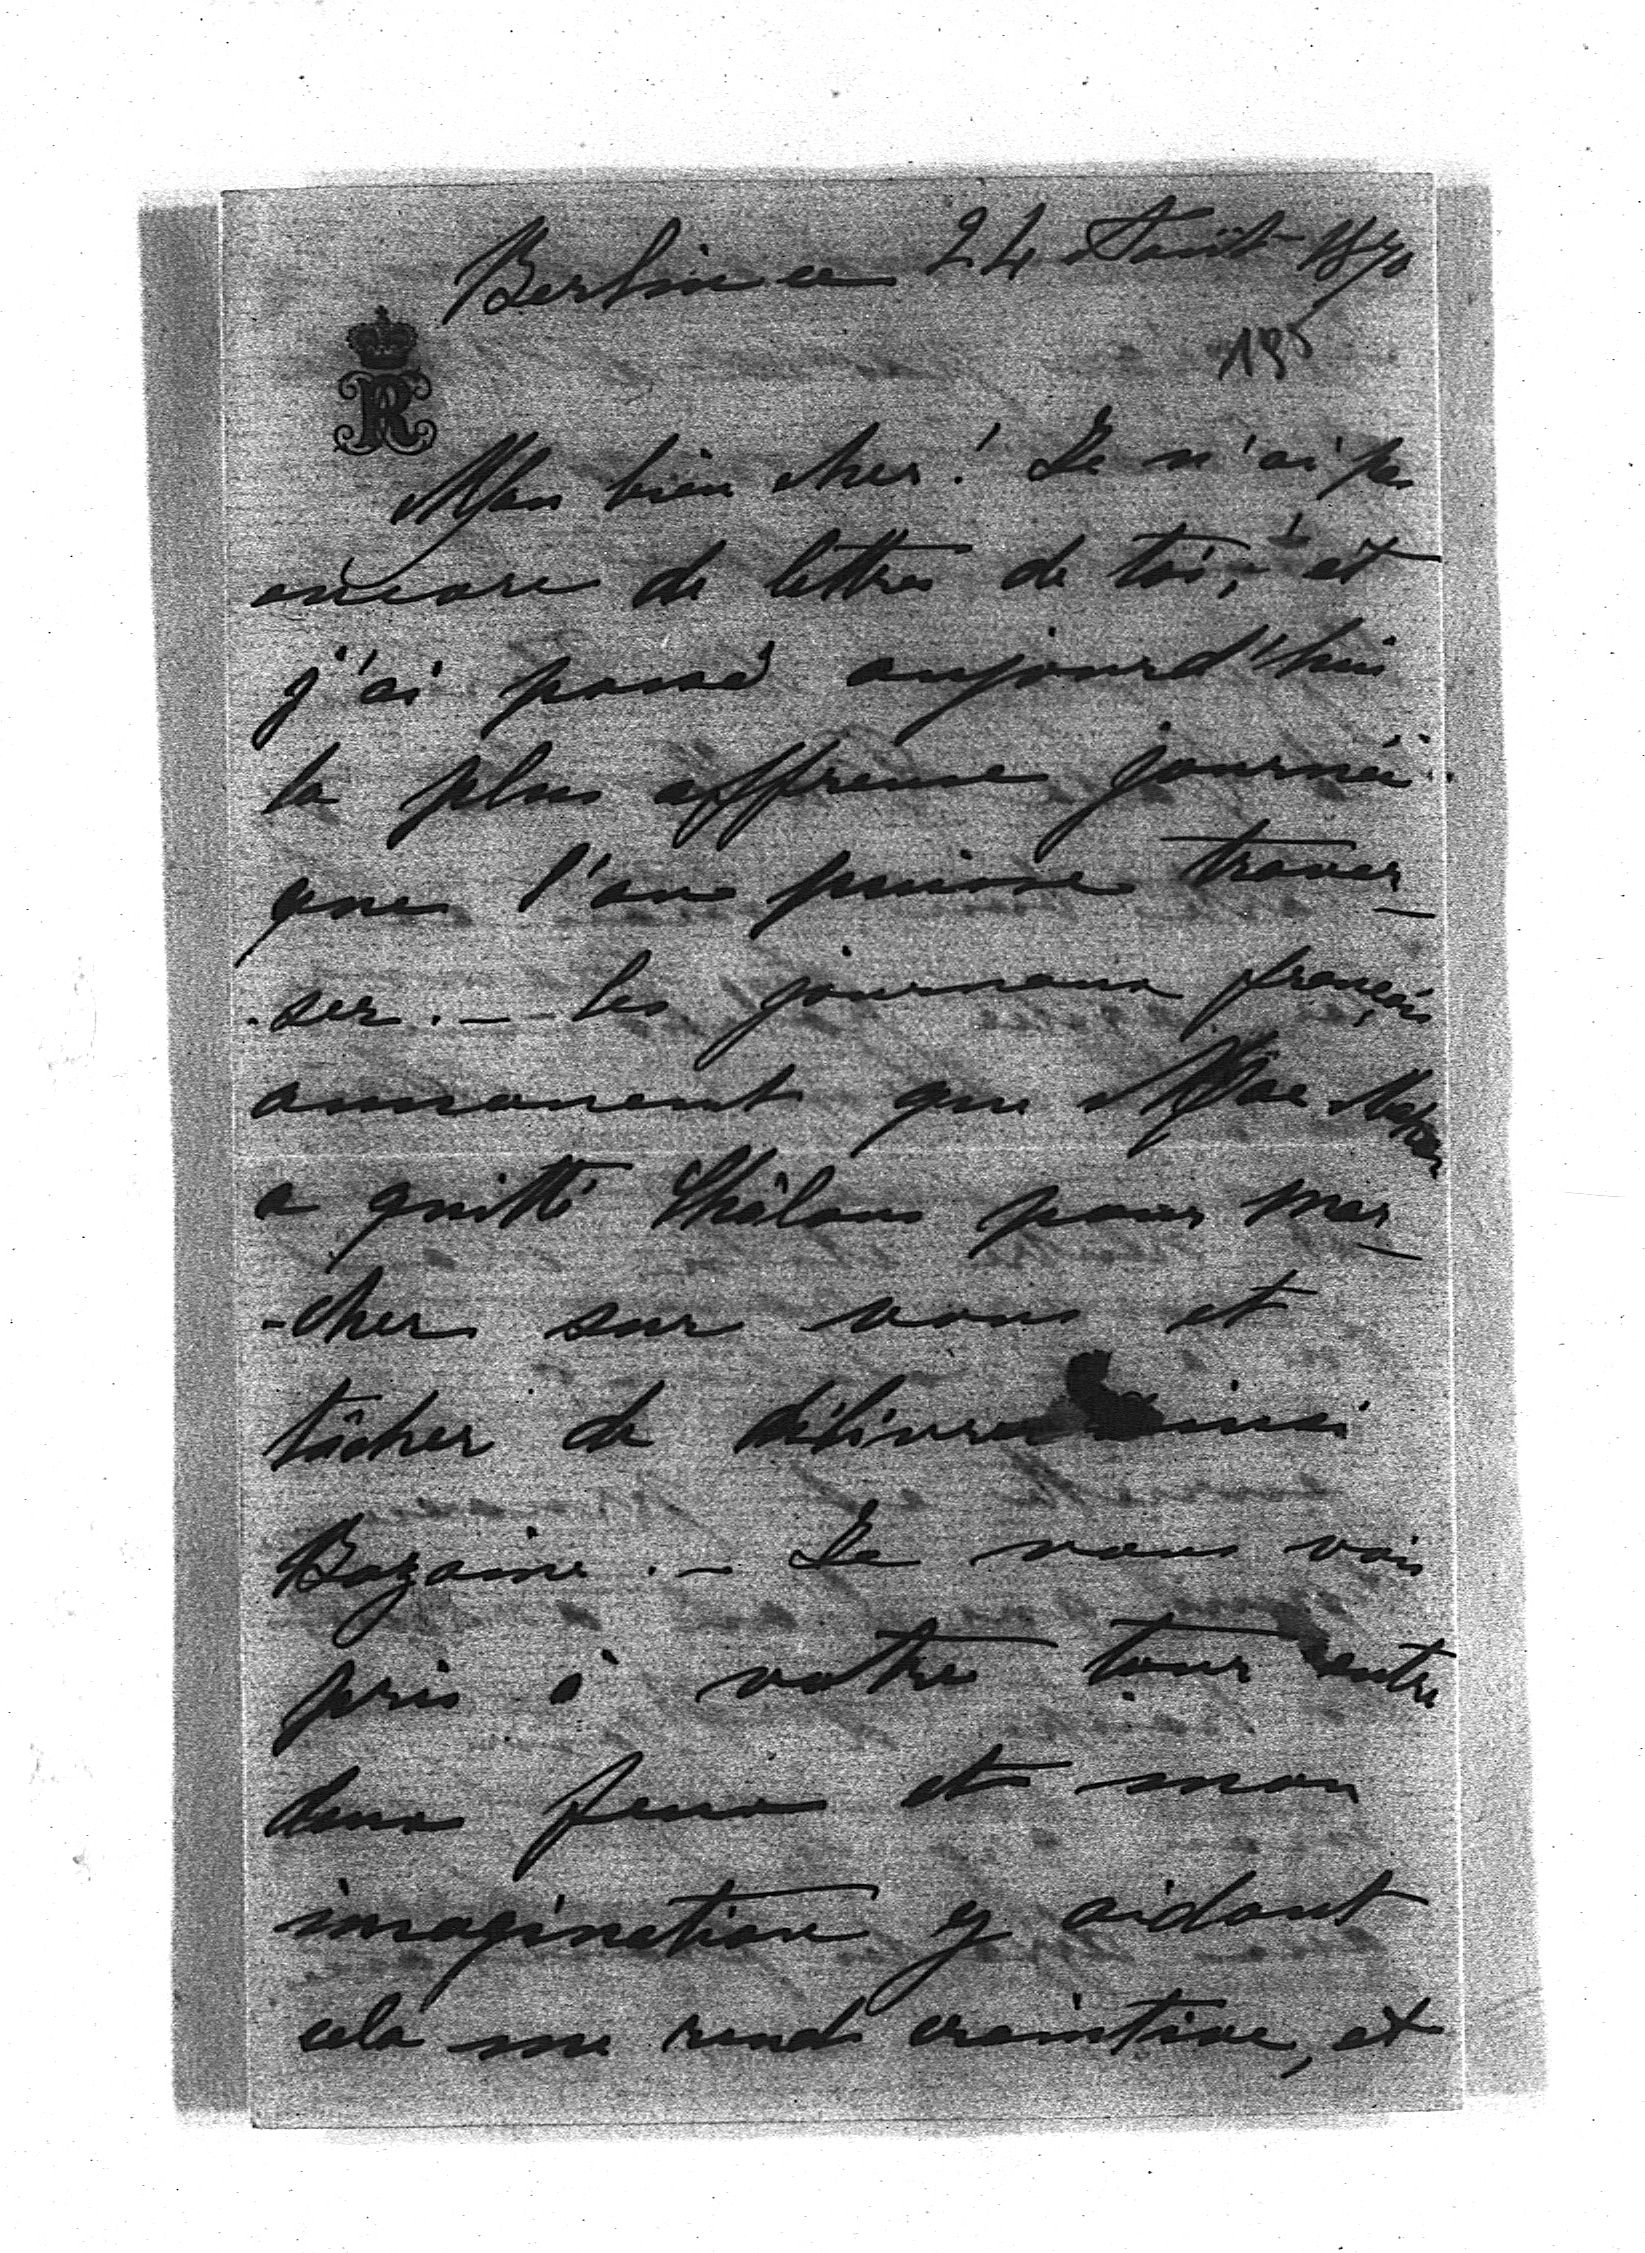 Berlin ce 24 Août 1870
195
R
Mon bien cher! Je n'ai pas
encore de lettre de toi, et
j'ai passé aujourd'hui
la plus affreuse journée
que l'on puisse traver-
-ser. – les journaux français
annoncent que Mac Mahon
a quitté Châlons pour mar-
-cher sur vous et
tâcher de délivrer ainsi
Bazaine. – Je vous vois
pris à votre tour entre
deux feux et mon
imagination y aidant
cela me rend craintive, et